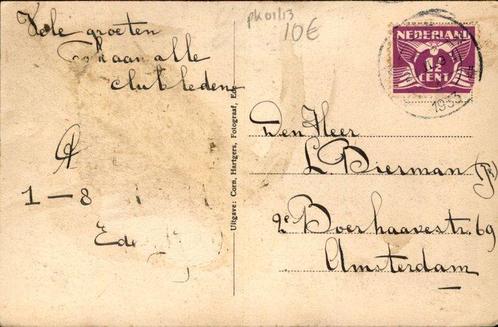 Vele groeten
ook aan alle
clubleden
1-8
Ede
Uitgave: Corn. Hartgers, Fotograaf, Ede
pk01/13
10€
NEDERLAND
1½
CENT
1933
Den Heer
L. Bierman
2e Boerhaavestr. 69
Amsterdam